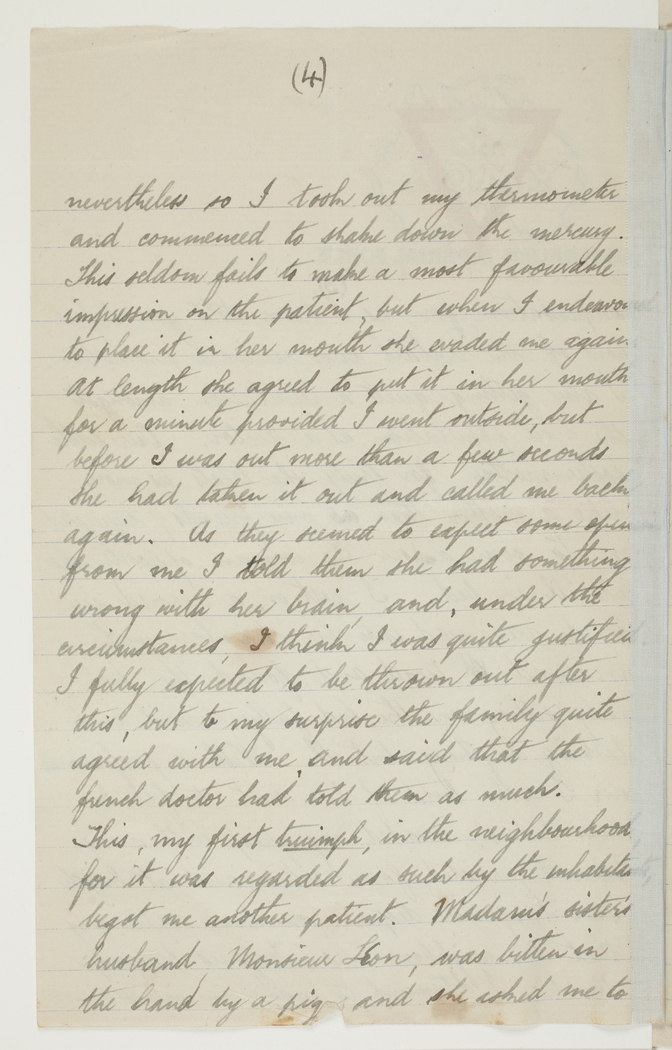 (4)
nevertheless so I took out my thermometer
and commenced to shake down the mercury.
This seldom fails to make a most favourable
impression on the patient, but when I endeavou
to place it in her mouth she evaded me again.
At length she agreed to put it in her mouth
for a minute provided I went outside, but
before I was out more than a few seconds
she had taken it out and called me back
again. As they seemed to expect some opin
from me I told them she had something
wrong with her brain, and, under the
circumstances, I think I was quite justified.
I fully expected to be thrown out after
this, but to my surprise the family quite
agreed with me, and said that the
french doctor had told them as much.
This, my first triumph, in the neighbourhood,
for it was regarded as such by the inhabitan
begot me another patient. Madam's sister's
husband, Monsieur Leon, was bitten in
the hand by a pig and she asked me to